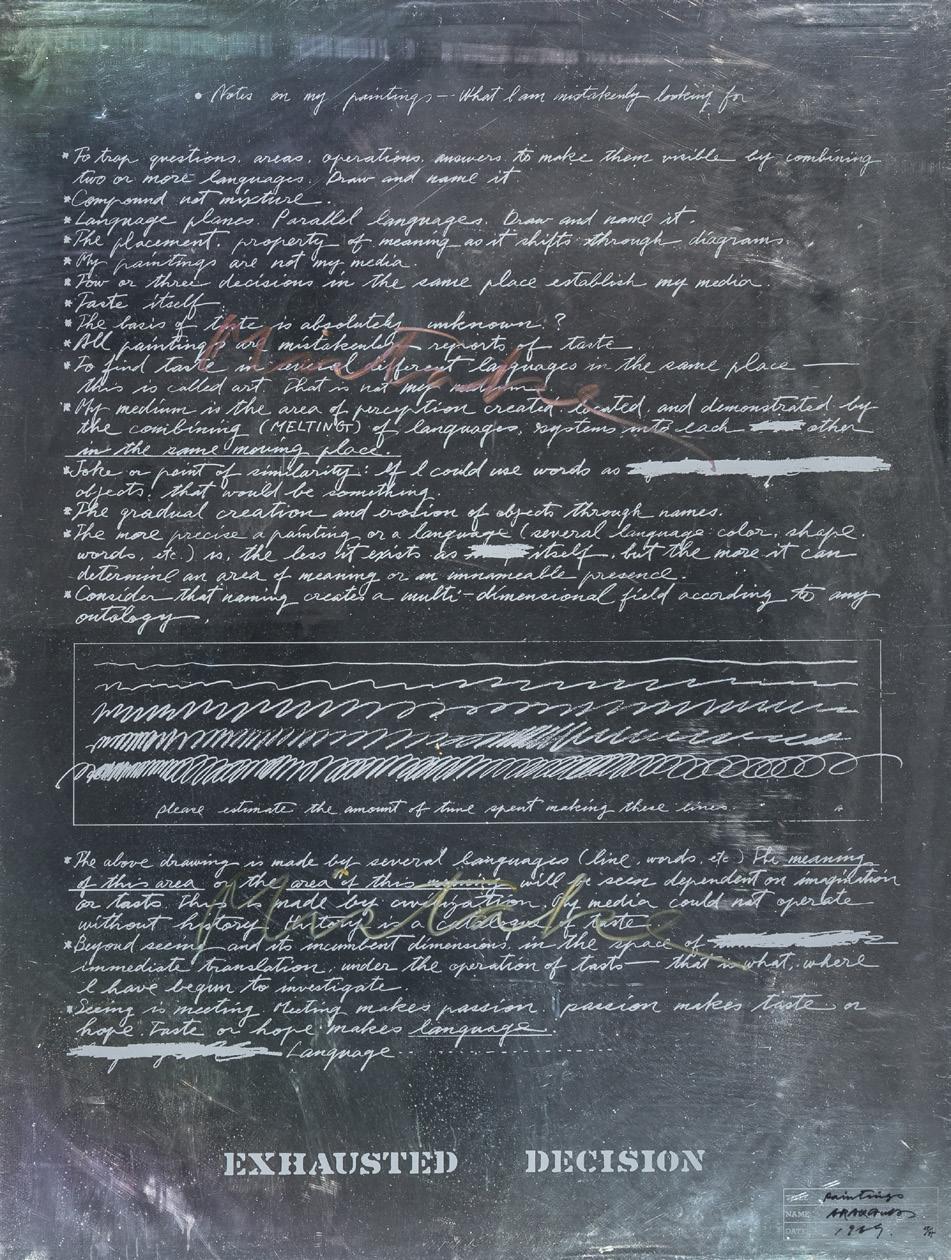 • Notes on my paintings — What I am mistakenly looking for
* To trap questions, areas, operations, answers, to make them visible by combining
two or more languages. Draw and name it
* Compound not mixture.
* Language planes. Parallel languages. Draw and name it.
* The placement, property of meaning as it shifts through diagrams.
* My paintings are not my media
* Two or three decisions in the same place establish my media.
* Taste itself
* The basis of taste is absolutely unknown.?
* All paintings are mistakenly reports of taste
* To find taste in several different languages in the same place —
this is called art. That is not my
Mistake
* My medium is the area of perception created, located, and demonstrated by
the combining (MELTING) of languages, systems into each other
in the same moving place.
* Joke or point of similarity: If I could use words as
objects! that would be something.
* The gradual creation and erosion of objects through names.
* The more precise a painting or a language (several language color, shape,
words, etc.) is, the less it exists as itself, but the more it can
determine an area of meaning or an unnameable presence.
* Consider that naming creates a multi-dimensional field according to any
ontology.
please estimate the amount of time spent making these lines.
* The above drawing is made by several languages (line, words, etc) The meaning
of this area or the area of this meaning will be seen dependent on imagination
or taste. This is made by civilization. My media could not operate
without history. History is a catalogue of taste
Mistake
* Beyond seeing and its incumbent dimensions, in the space of
immediate translation, under the operation of taste — that is what, where
I have begun to investigate.
* Seeing is meeting Meeting makes passion, passion makes taste or
hope Taste or hope makes language.
Language
EXHAUSTED DECISION
paintings
NAME ARAKAWA
DATE 1969